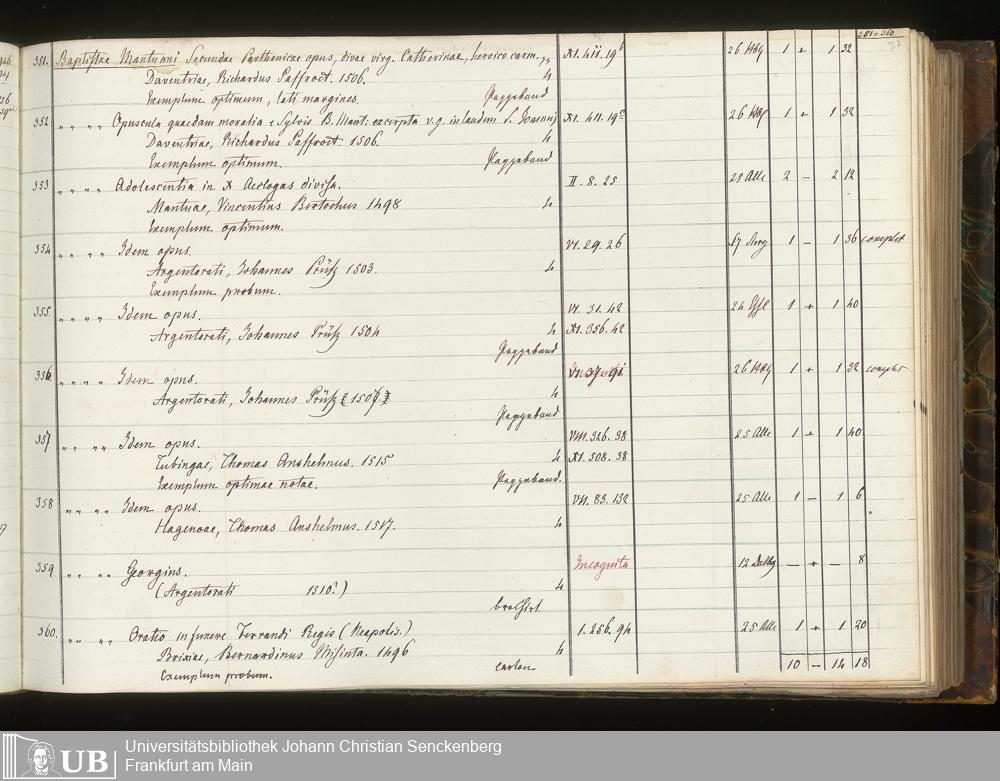 351-360
37
351. Baptistae Mantuani Secundae Parthenicae opus, divae virg. Catherinae, heroico carm. XI. 411. 19 26 1 + 1 32
Daventriae, Richardus Paffroet. 1506. 4
Exemplum optimum, lati margines. Pappeband
352 " " " " Opuscula quaedam moralia e Sylvis B. Mant: excerpta v. g. in laudem S. Joannis XI. 411. 19 26 1 + 1 32
Daventriae, Richardus Paffroet. 1506. 4
Exemplum optimum. Pappeband
353 " " " " Adolescentia in X Aeclogas divisa. II. 8. 25 25 Alle 2 – 2 12
Mantuae, Vincentius Bertochus 1498 4
Exemplum optimum.
354 " " " " Idem opus. VI. 29. 26 17 1 – 1 36 complet
Argentorati, Johannes Prüss 1503. 4
Exemplum probum.
355. " " " " Idem opus. VI. 31. 42 24 1 + 1 40
Argentorati, Johannes Prüss 1504 4 XI. 356. 42
Pappeband
356. " " " " Idem opus. 26 1 + 1 32 complet
Argentorati, Johannes Prüss 1507. 4
Pappeband
357 " " " " Idem opus. VIII. 326. 38 25 Alle 1 + 1 40
Tubingae, Thomas Anshelmus. 1515 4 XI. 508. 38
Exemplum optimae notae. Pappeband.
358 " " " " Idem opus. VII. 83. 132 25 Alle 1 – 1 6
Hagenoae, Thomas Anshelmus. 1517. 4
359 " " " " Georgius. Incognita 12 Dalbg – + – 8
(Argentorati 1510?) 4
broschirt
360. " " " " Oratio in funere Ferrandi Regis (Neapolis.) 1. 256. 94 25 Alle 1 + 1 20
Brixiae, Bernardinus Misinta. 1496 4
Exemplum probum. carton
10 – 14 18
UB
Universitätsbibliothek Johann Christian Senckenberg
Frankfurt am Main